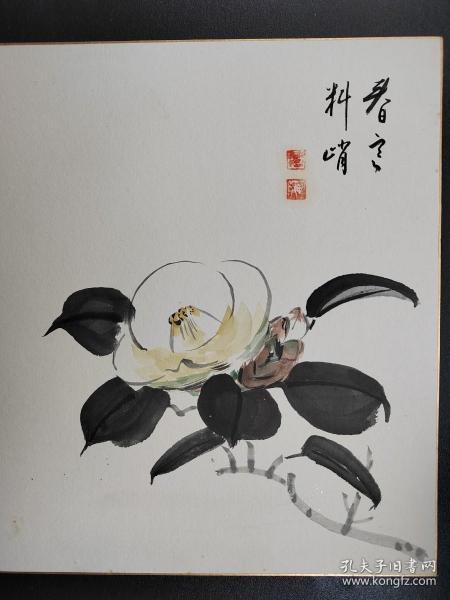 春寒
料峭
孔夫子旧书网
www.kongfz.com